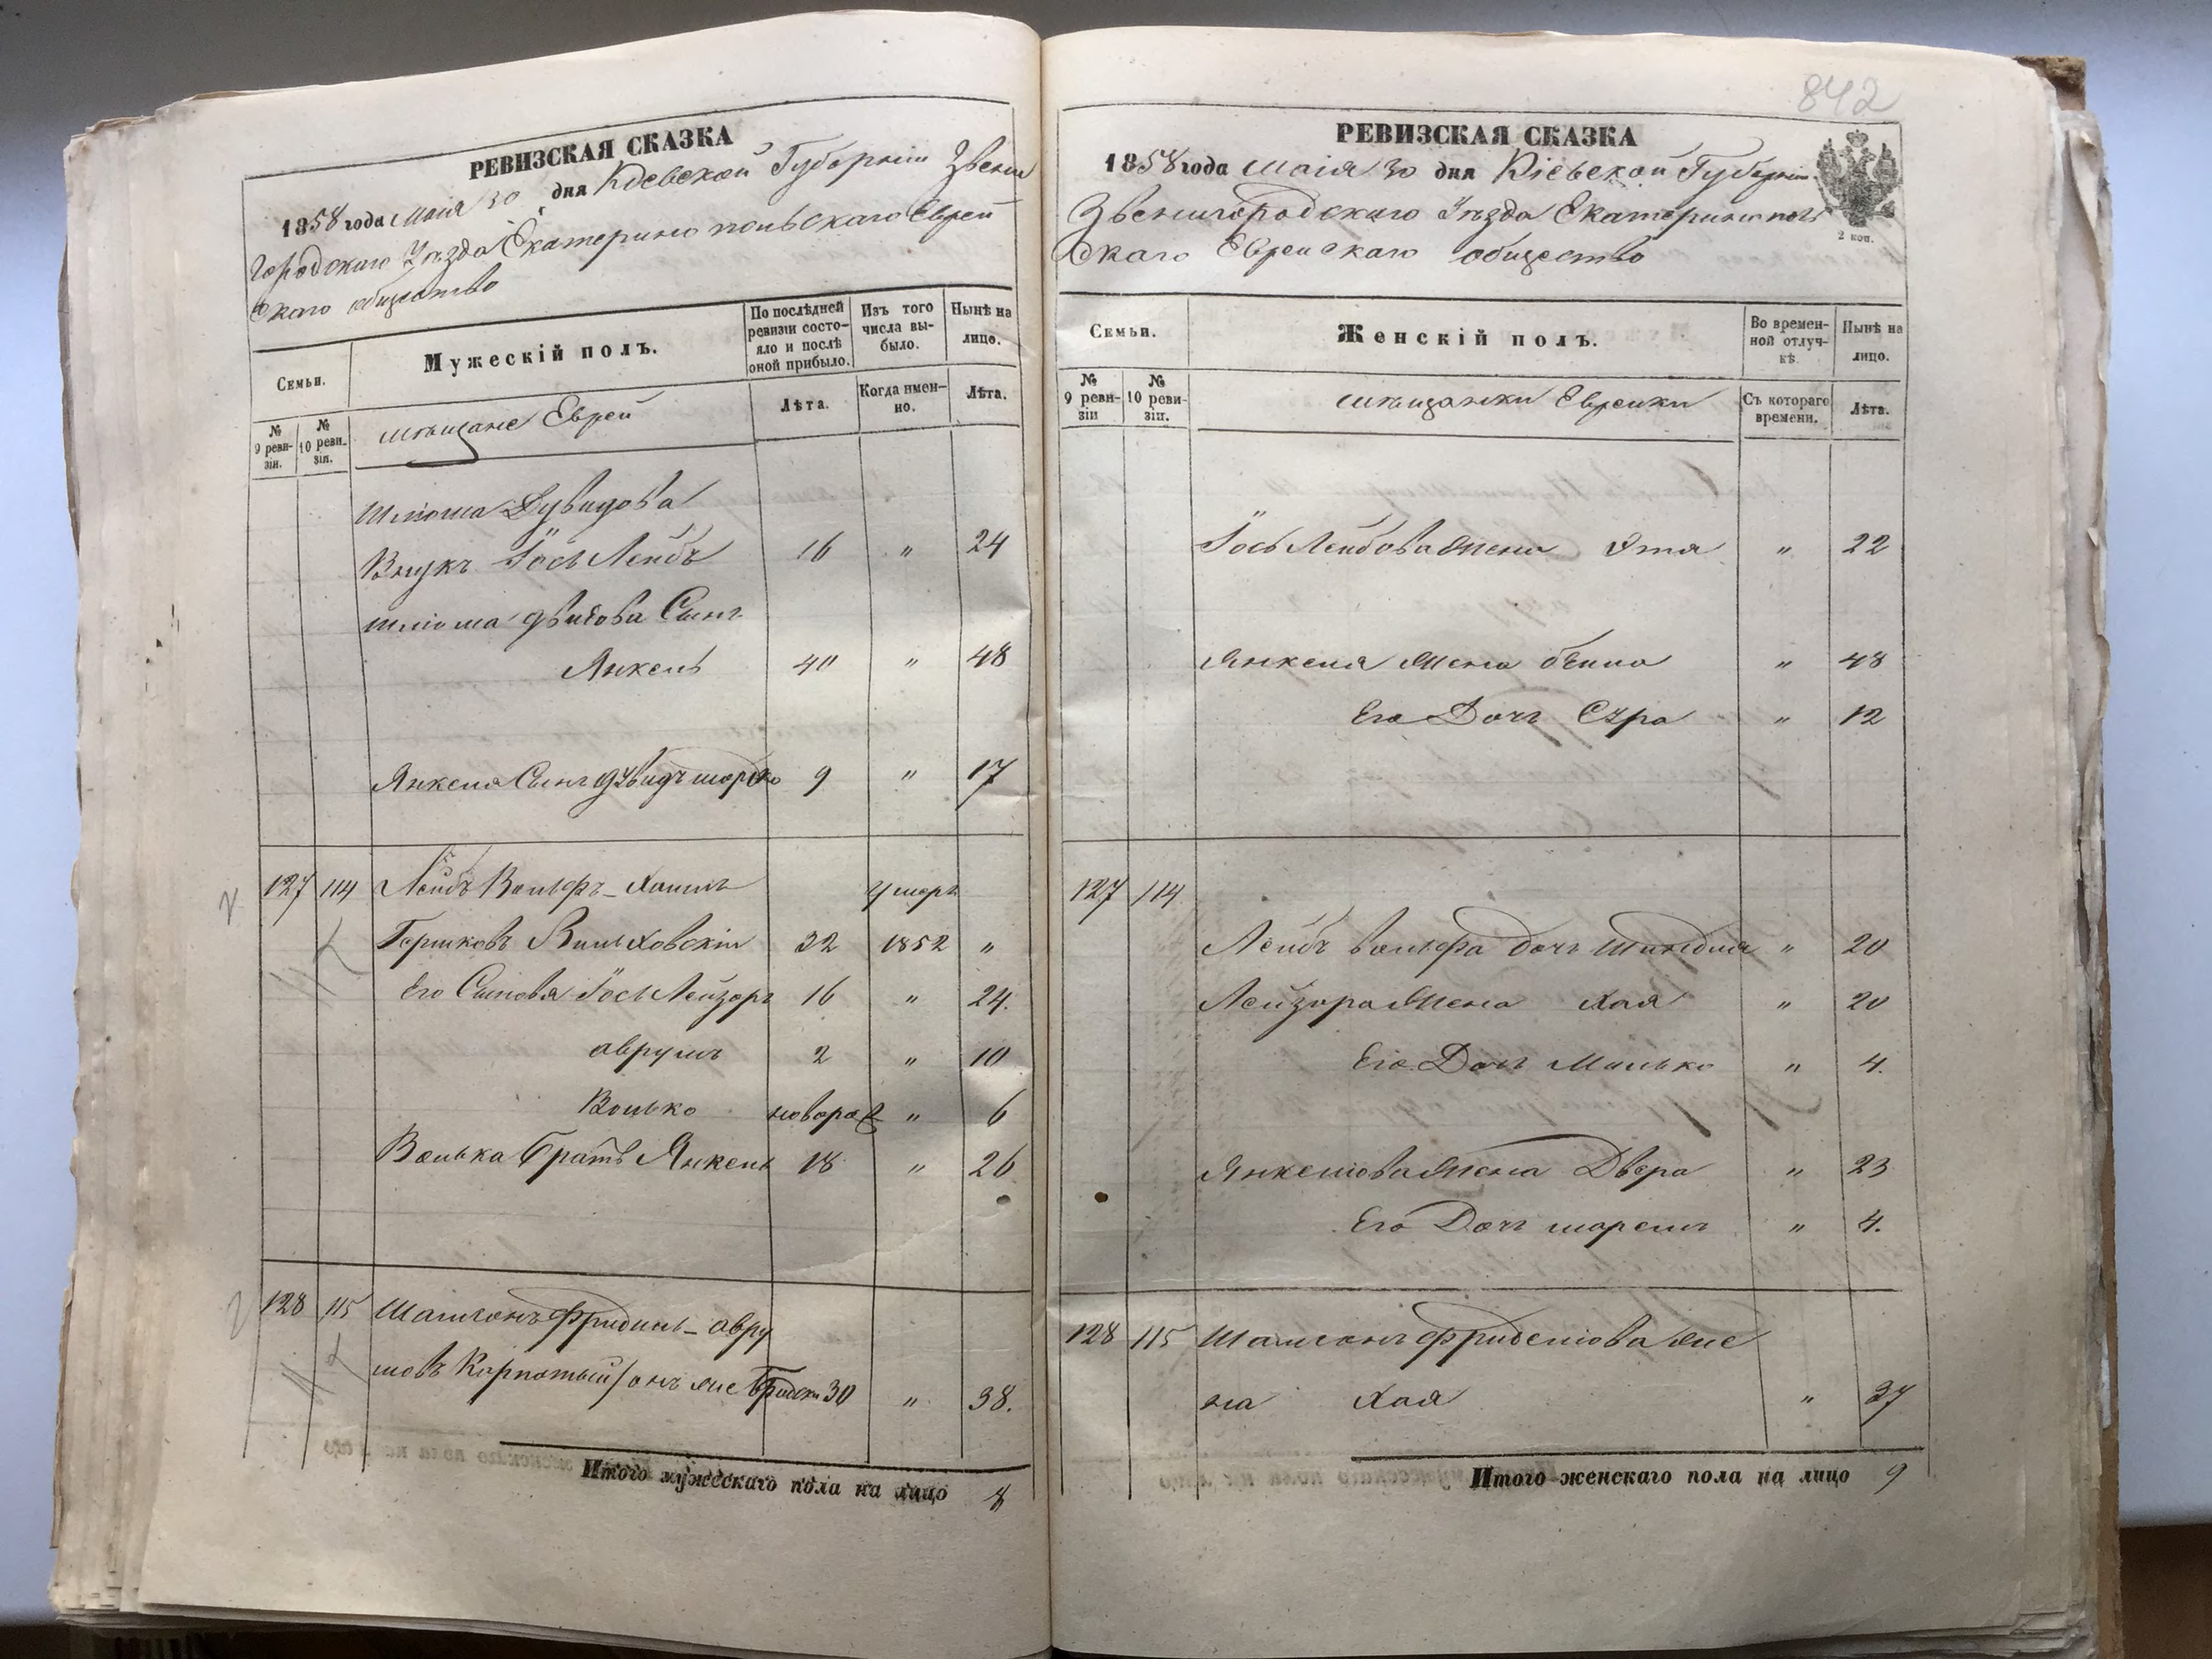 РЕВИЗСКАЯ СКАЗКА
1858 года Маія 30 дня Кіевской Губерніи Звени
городскаго Уѣзда Екатеринопольскаго Еврей
скаго общество
Семьи.
Мужескій полъ.
По послѣдней ревизіи состояло и послѣ оной прибыло.
Изъ того числа выбыло.
Нынѣ на лицо.
№ 9 ревизіи.
№ 10 ревизіи.
мѣщане Еврей
Лѣта.
Когда именно.
Лѣта.
Шліома Дувидова
Внукъ Іось Лейбъ 16 " 24
Шліома Двидова Сынъ
Янкель 40 " 48
Янкеля Сынъ Дувидъ шорко 9 " 17
127 114 Лейбъ Вольфъ - Хаимъ умеръ
Гершковъ Вильховскій 32 1852 "
Его Сыновя Іось Лейзоръ 16 " 24.
Аврумъ 2 " 10
Волько новорож " 6
Волька братъ Янкель 18 " 26
128 115 Шамсонъ Фридиль - Авру
мовъ Корпотый / онъ же 30 " 38.
Итого мужескаго пола на лицо 8
842
РЕВИЗСКАЯ СКАЗКА
1858 года Маія 30 дня Кіевской Губерніи
Звенигородскаго Уѣзда Екатеринополь
скаго Еврейскаго общество
2 коп.
Семьи.
Женскій полъ.
Во временной отлучкѣ.
Нынѣ на лицо.
№ 9 ревизіи
№ 10 ревизіи.
мѣщанки Еврейки
Съ котораго времени.
Лѣта.
Іось Лейбова Жена Этя " 22
Янкеля Жена бейла " 48
Его Дочъ Сура " 12
127 114
Лейбъ вольфа дочъ Шиндля " 20
Лейзора Жена Хая " 20
Его Дочъ Малько " 4.
Янкелова Жена Двера " 23
Его Дочъ " 4.
128 115 Шамсонъ Фриделова же
на Хая " 37
Итого женскаго пола на лицо 9